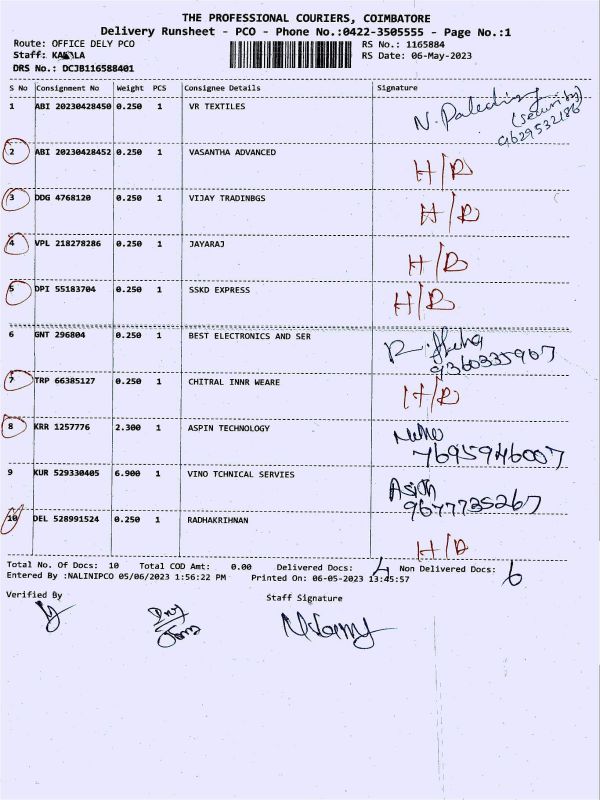 THE PROFESSIONAL COURIERS, COIMBATORE
Delivery Runsheet - PCO - Phone No.:0422-3505555 - Page No.:1
Route: OFFICE DELY PCO RS No.: 1165884
Staff: RS Date: 06-May-2023
DRS No.: DCJB116588401
S No Consignment No Weight PCS Consignee Details Signature
1 ABI 20230428450 0.250 1 VR TEXTILES
(security)
9629532186
2 ABI 20230428452 0.250 1 VASANTHA ADVANCED H/D
3 DDG 4768120 0.250 1 VIJAY TRADINBGS H/D
4 VPL 218278286 0.250 1 JAYARAJ H/D
5 DPI 55183704 0.250 1 SSKD EXPRESS H/D
6 GNT 296804 0.250 1 BEST ELECTRONICS AND SER
9360335967
7 TRP 66385127 0.250 1 CHITRAL INNR WEARE H/D
8 KRR 1257776 2.300 1 ASPIN TECHNOLOGY
7695946007
9 KUR 529330405 6.900 1 VINO TCHNICAL SERVIES
9677735267
10 DEL 528991524 0.250 1 RADHAKRIHNAN H/D
Total No. Of Docs: 10 Total COD Amt: 0.00 Delivered Docs: 4 Non Delivered Docs: 6
Entered By :NALINIPCO 05/06/2023 1:56:22 PM Printed On: 06-05-2023 13:45:57
Verified By Staff Signature